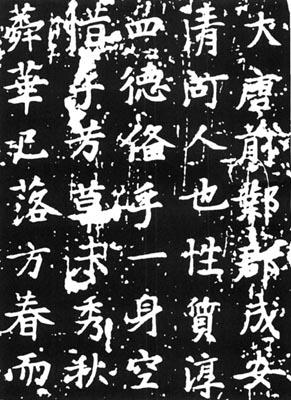 大唐前鄴郡成安
清河人也性質淳
四德俻乎一身空
惜乎芳草未秀秋
蕣華已落方春而